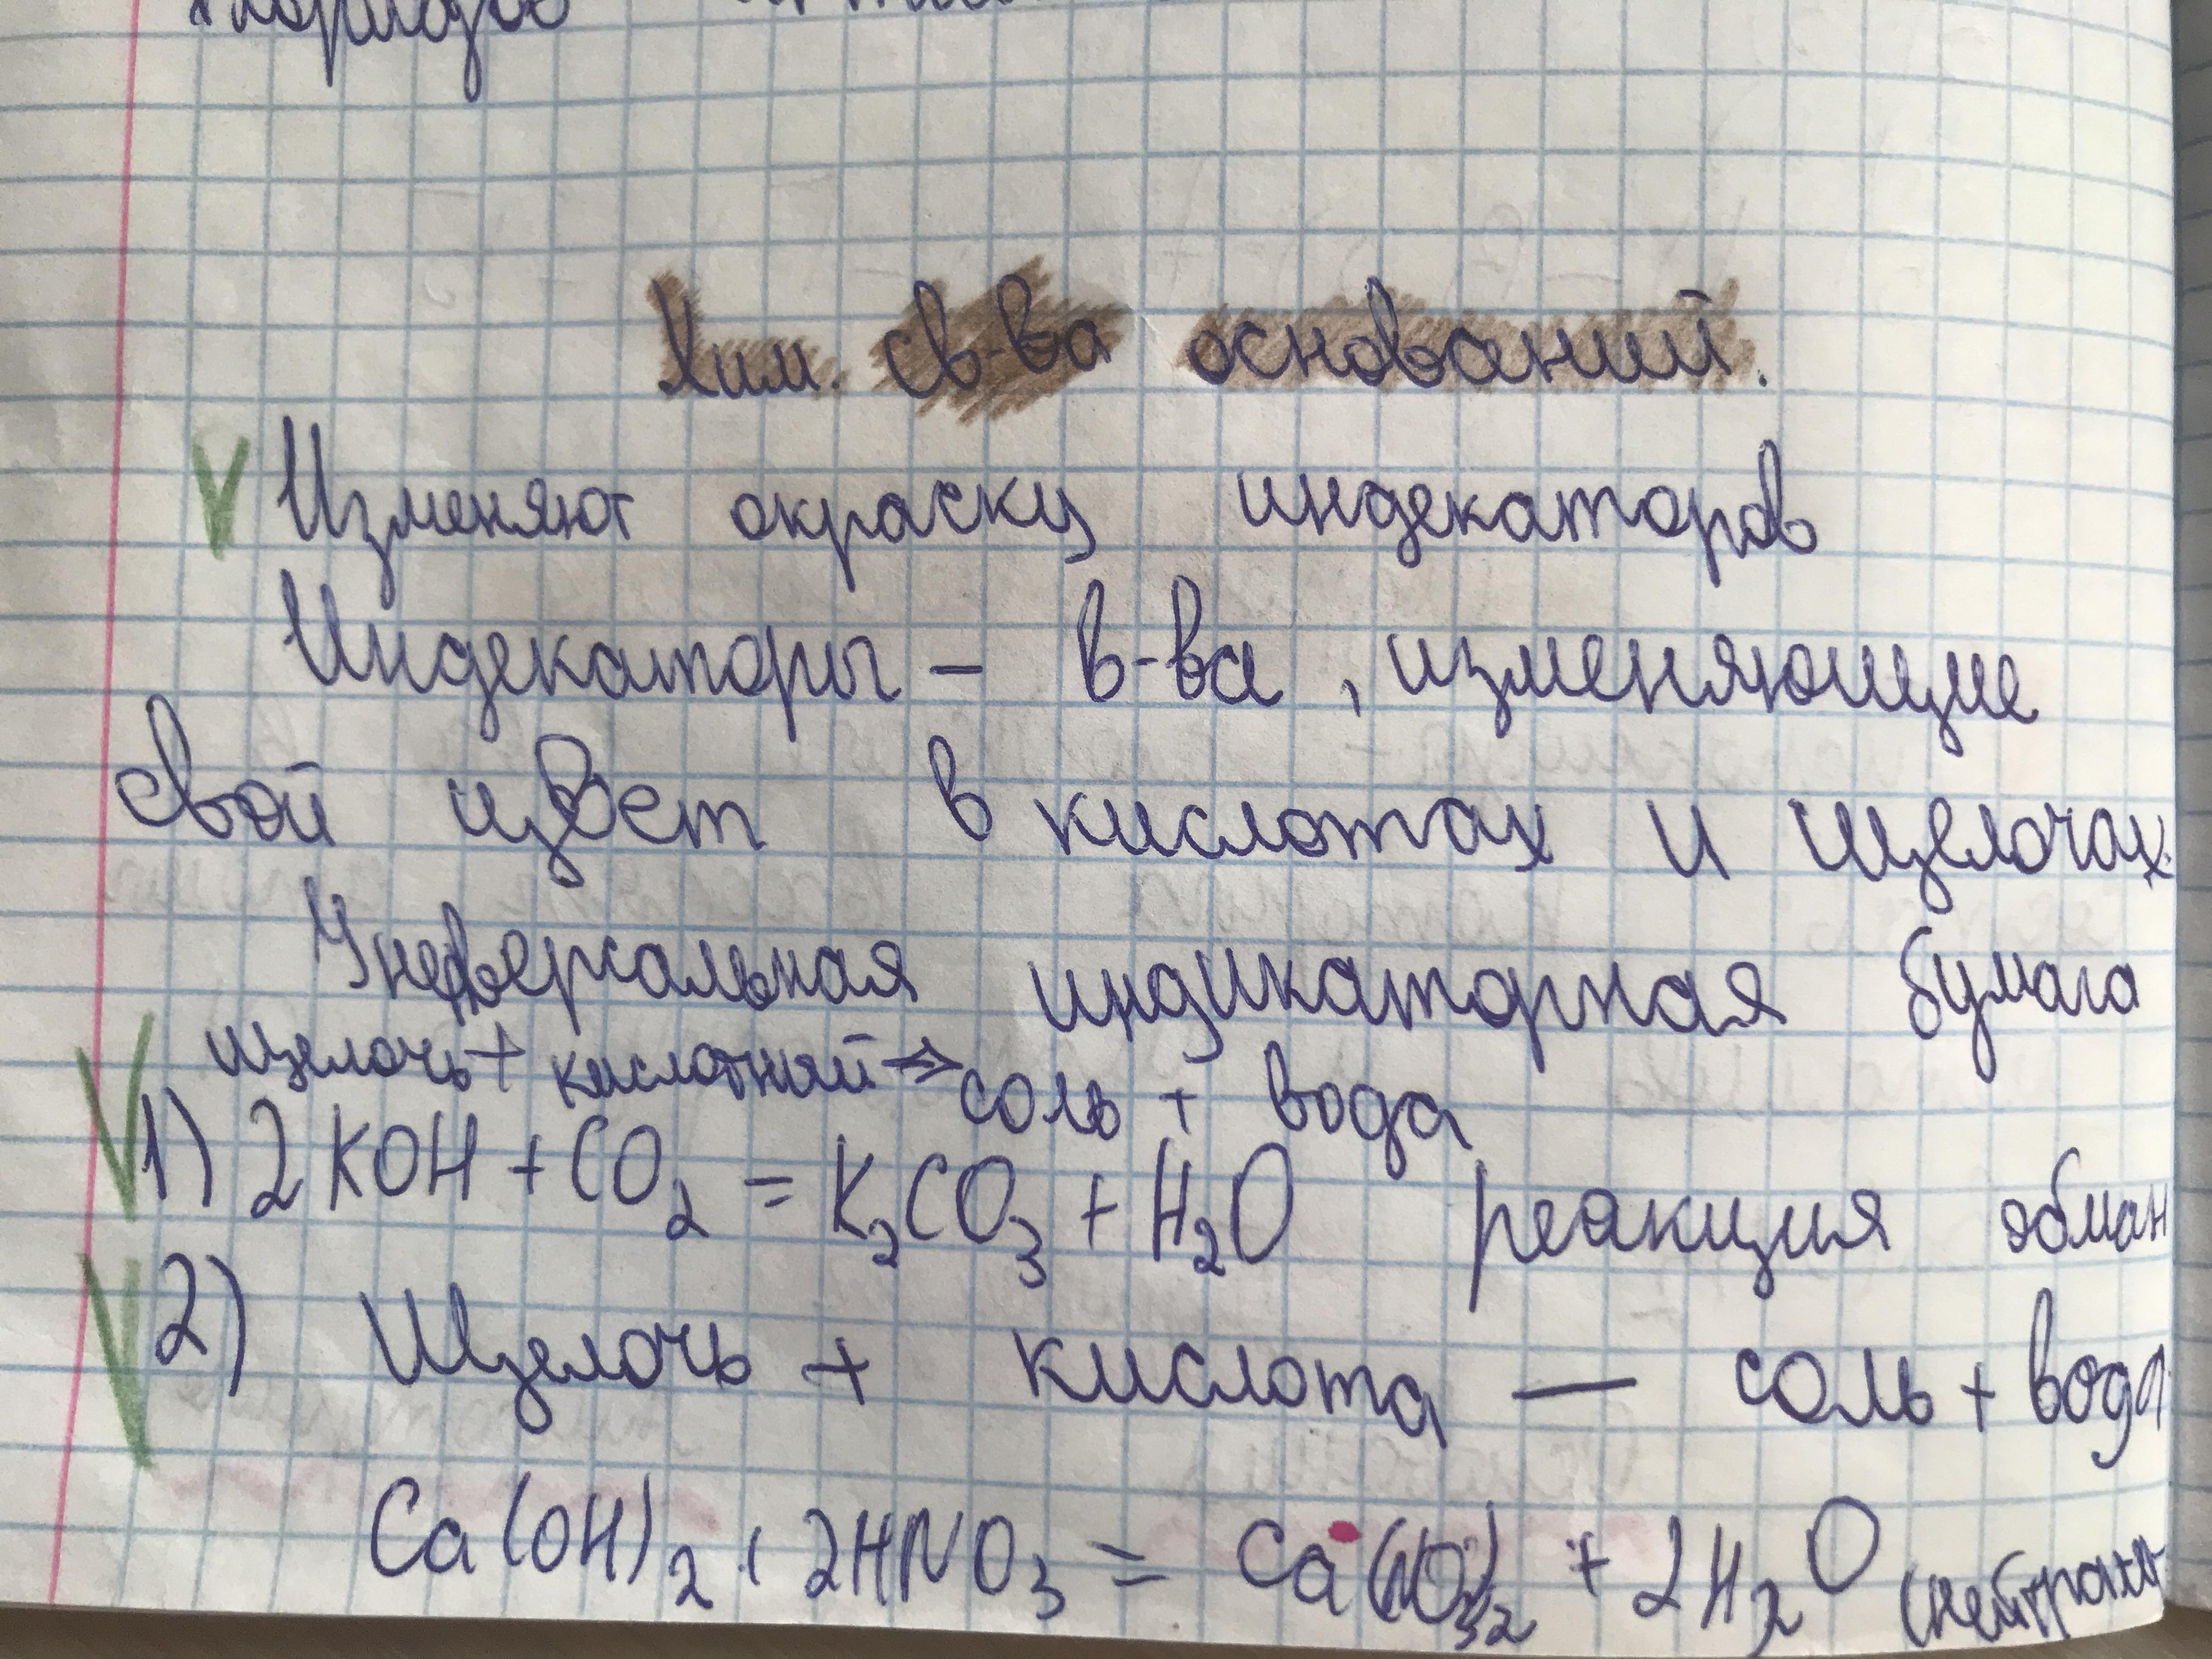 Хим. св-ва оснований.
Изменяют окраску индекаторов
Индекаторы – в-ва, изменяющие
свой цвет в кислотах и щелочах.
Унеферсальная индикаторная бумага
щелочь + кислотный → соль + вода
1) 2KOH + CO₂ = K₂CO₃ + H₂O реакция обман
2) Щелочь + кислота — соль + вода
Ca(OH)₂ + 2HNO₃ = Ca(NO₃)₂ + 2H₂O (нейтрали